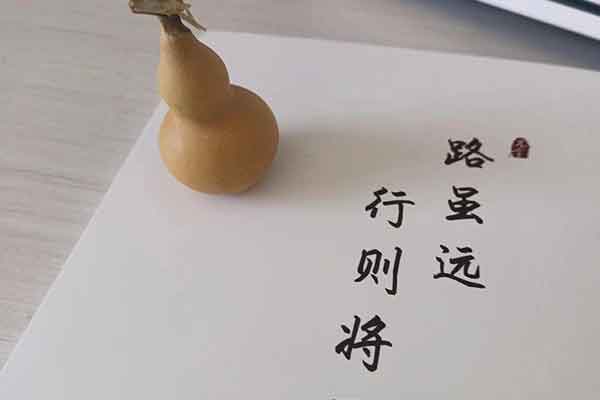 路虽远
行则将